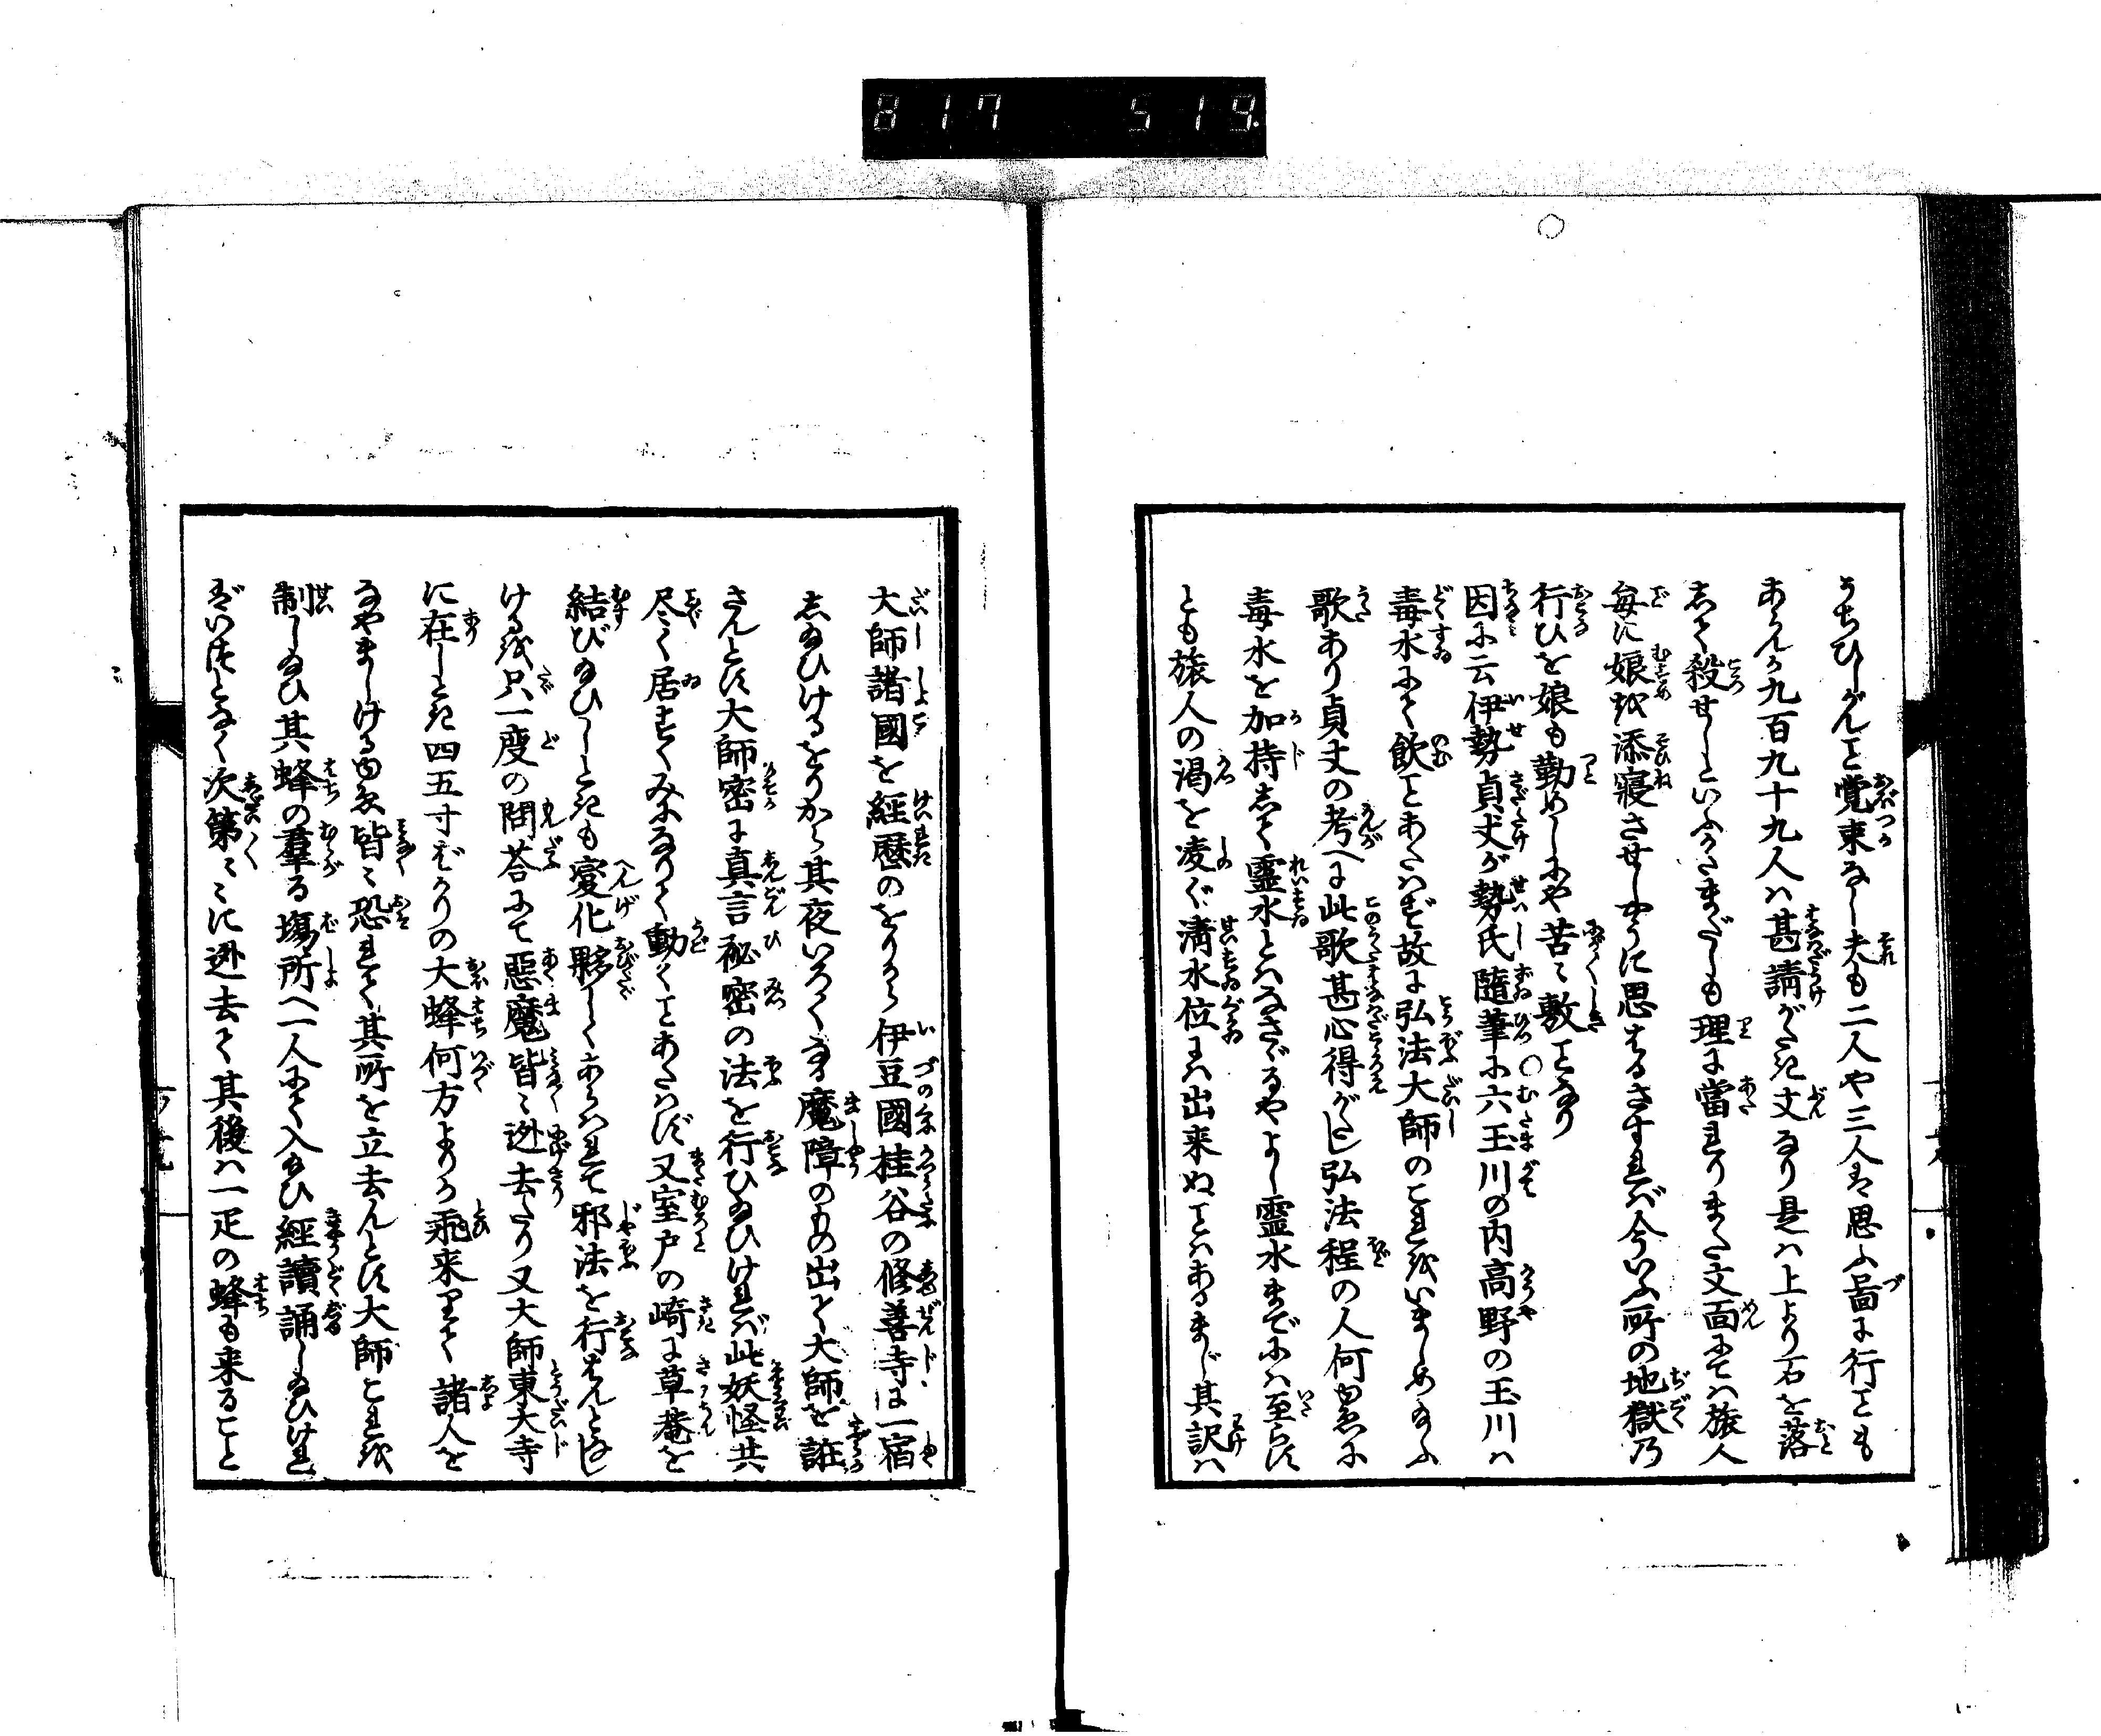 817 519
うちひしがんこと覚束なし夫も二人や三人は思ふ圖に行こともあらんが
九百九十九人は甚請がたき文なり是は上より石を落
して殺せしといふかまだしも理に當れりまた文面にては旅人
毎に娘を添寝させしやうに思はるさすれば今いふ所の地獄乃
行ひを娘も勤めしにや苦々敷ことなり
因に云伊勢貞丈が勢氏隨筆に○六玉川の内高野の玉川は
毒水にて飲ことあたはず故に弘法大師のこれをいましめ給ふ
歌あり貞丈の考へに此歌甚心得がたし弘法程の人何ゆゑに
毒水を加持して靈水とはなさざるやよし霊水までには至らず
とも旅人の渇を凌ぐ清水位には出来ぬことはあるまじ其訳は
大師諸國を経歴のをりから伊豆國桂谷の修善寺に一宿
し給ひけるをりから其夜いろ〱なる魔障のもの出て大師を誑
さんとす大師密に真言秘密の法を行ひ給ひければ此妖怪共
尽く居すくみになりて動くことあたはず又室戸の崎に草菴を
結び給ひしときも変化夥しくあらはれて邪法を行はんとなし
けるを只一度の問荅にて悪魔皆々迯去たり又大師東大寺
に在しとき四五寸ばかりの大蜂何方よりか飛来りて諸人を
なやましけるゆゑ皆々恐れて其所を立去んとす大師これを
制し給ひ其蜂の羣る場所へ一人にて入給ひ經讀誦し給ひけれ
ば
次第々々に迯去て其後は一疋の蜂も来ること